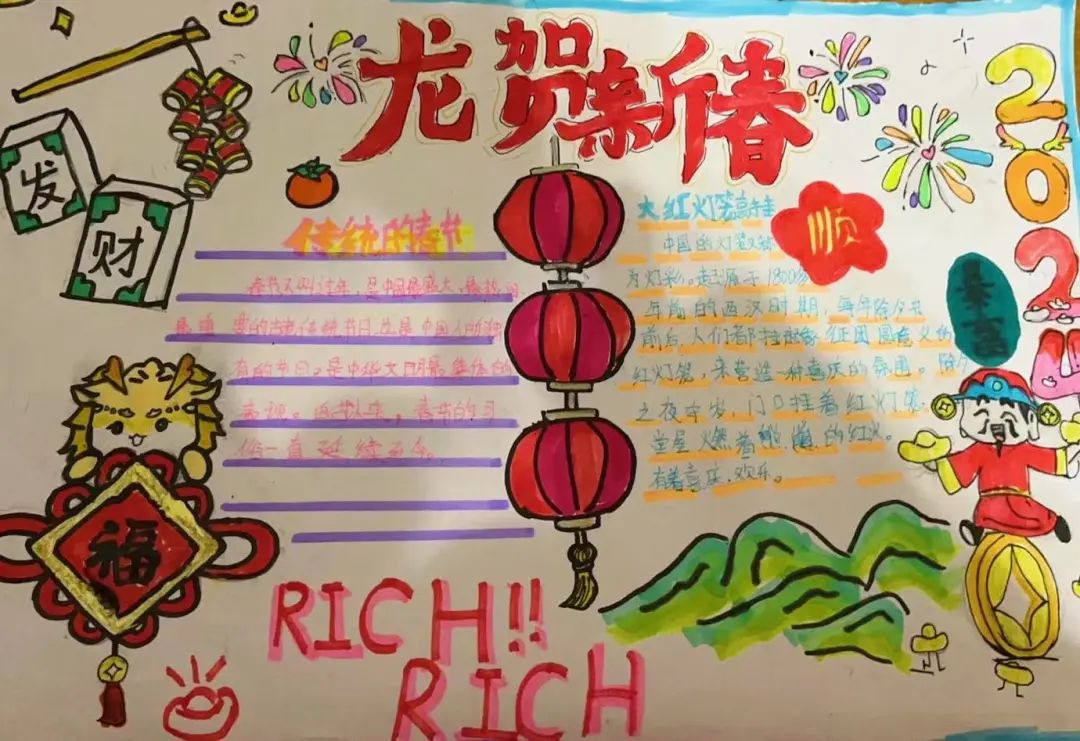 龙贺新春
2024
发
财
传统的春节
春节又叫过年，是中国最盛大、最热闹
最重要的古老传统节日，也是中国人所独
有的节日。是中华文明最集体的
表现。西汉以来，春节的习
俗一直延续至今。
大红灯笼高挂
中国的灯笼又称
为灯彩。起源于1800多
年前的西汉时期，每年除夕节
前后，人们都挂起象征团圆意义的
红灯笼，来营造一种喜庆的氛围。除夕
之夜守岁，门口挂着红灯笼，
里燃着的红火。
有着喜庆、欢乐。
顺
暴富
福
RICH!!
RICH